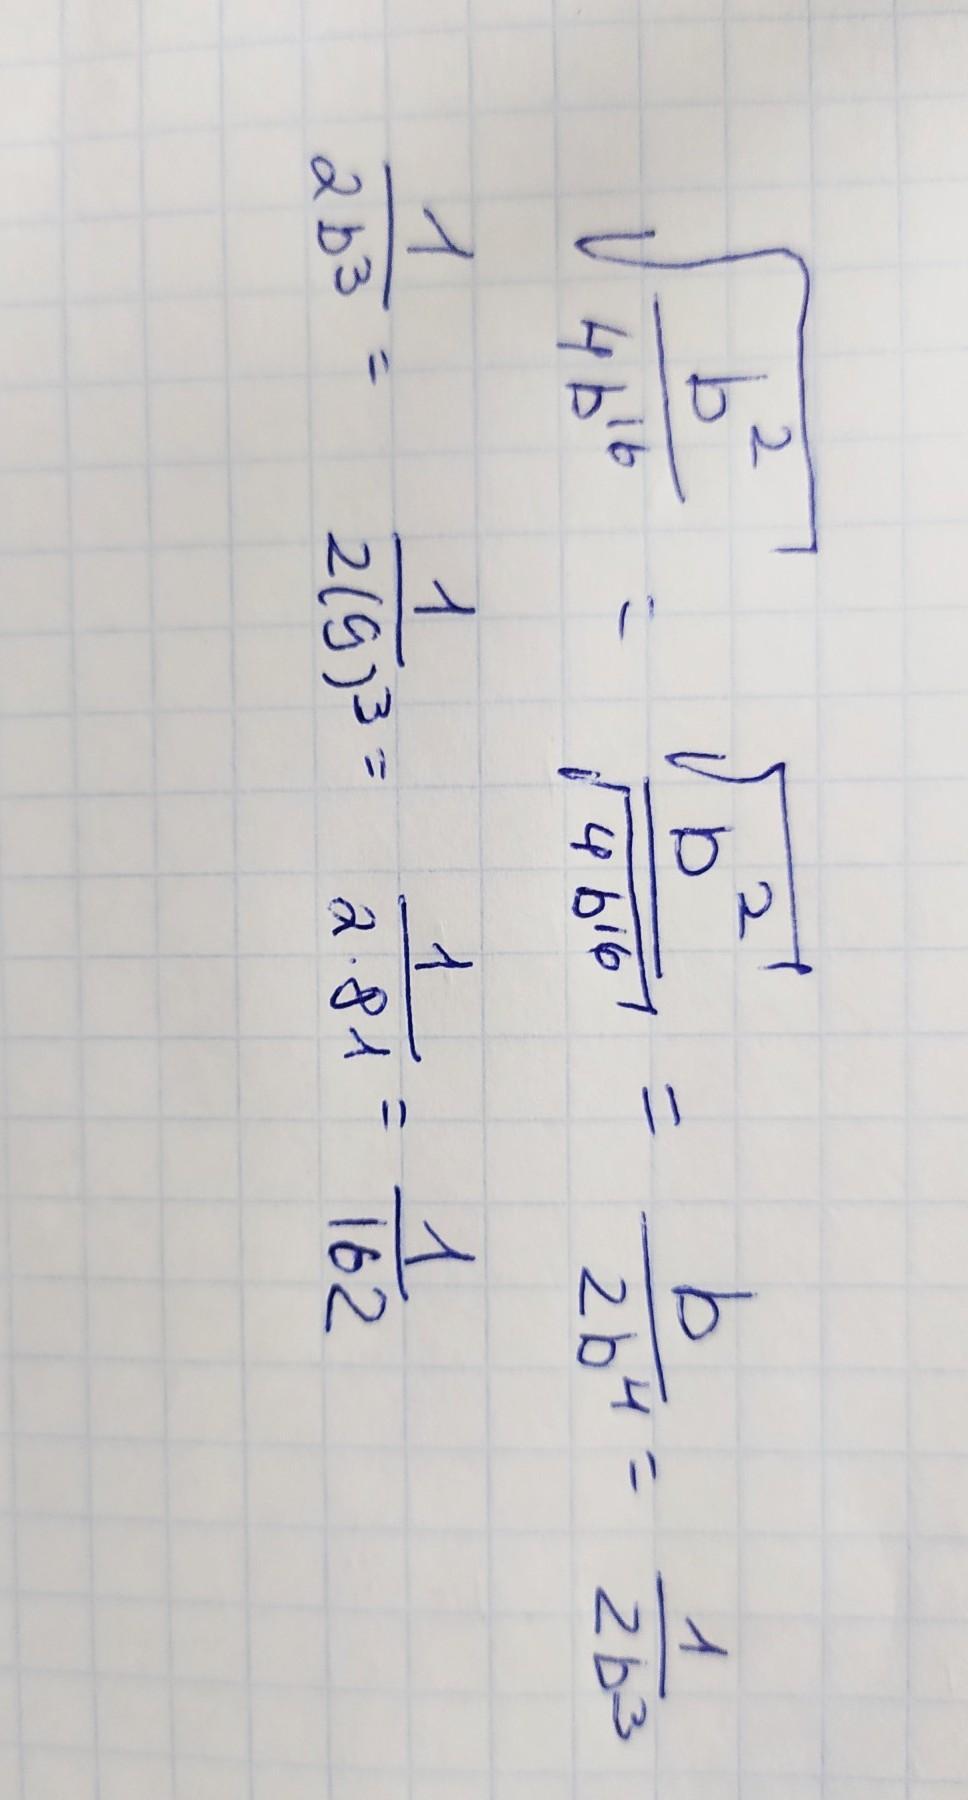 √(b²/(4b¹⁶)) = √(b²)/√(4b¹⁶) = b/(2b⁴) = 1/(2b³)
1/(2b³) = 1/(2(9)³) = 1/(2·81) = 1/162